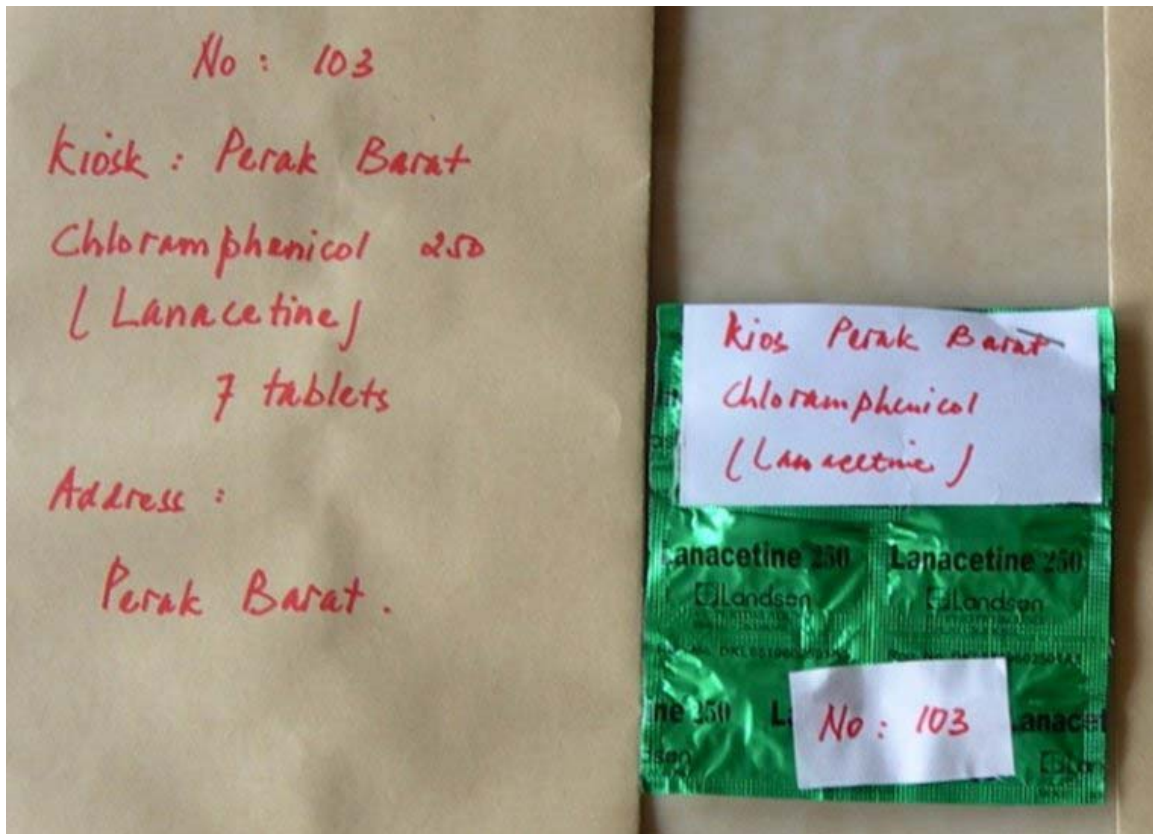 No: 103
Kiosk: Perak Barat
Chloramphenicol 250
(Lanacetine)
7 tablets
Address:
Perak Barat.
Kios Perak Barat
Chloramphenicol
(Lanacetine)
anacetine 250 Lanacetine 250
Landson Landson
ne 250 La Lanacet
No: 103